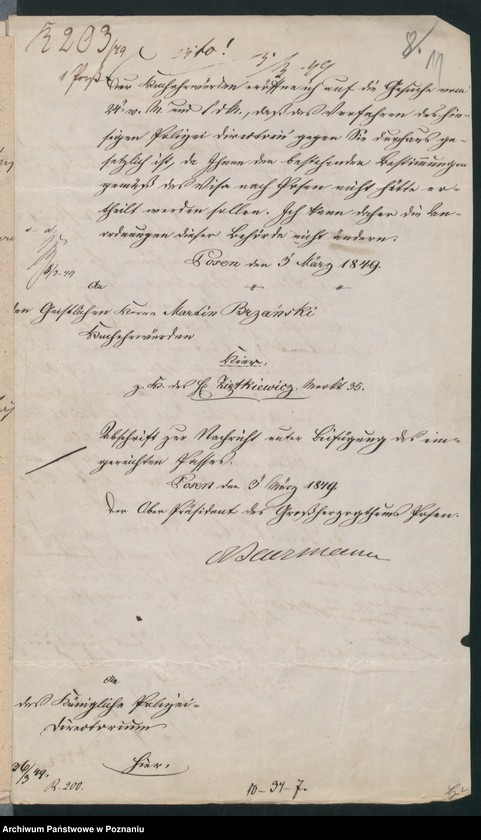 R 203/49 cito! 8.
5/3 49 11
1 Paß
Euer Hochehrwürden eröffne ich auf die Gesuche vom
24. v. M. und l. d. M., daß das Verfahren des hie-
sigen Polizei Directorii gegen Sie durchaus ge-
setzlich ist, da Ihnen den bestehenden Bestimmungen
gemäß das Visa nach Posen nicht hätte er-
theilt werden sollen. Ich kann daher die An-
ordnungen dieser Behörde nicht ändern.
Posen den 5 März 1849.
An
den Geistlichen Herrn Martin Brzański
Hochehrwürden
hier.
z. H. des H. Ziętkiewicz, Markt 35.
Abschrift zur Nachricht unter Beifügung des ein-
gereichten Passes.
Posen den 5 März 1849
Der Ober Präsident des Großherzogthums Posen.
Beurmann
An
das Königliche Polizei-
Directorium
hier.
36/3 49.
R. 200.
10-34-7.
Archiwum Państwowe w Poznaniu